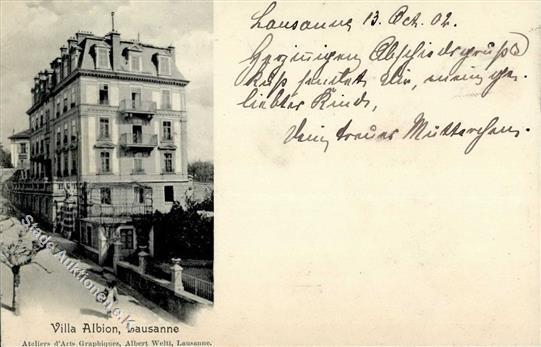 Lausanne 13. Oct. 02.
Abschiedsgruß
Kuß sendet Dir, mein ge-
liebtes Kind,
Dein treues Mütterchen.
Villa Albion, Lausanne
Ateliers d'Arts Graphiques, Albert Welti, Lausanne.